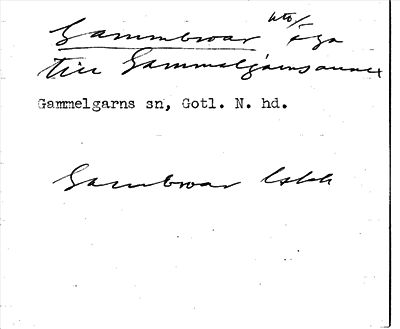 Gammbroar
till Gammelgarnsannex
Gammelgarns sn, Gotl. N. hd.
Gambroar